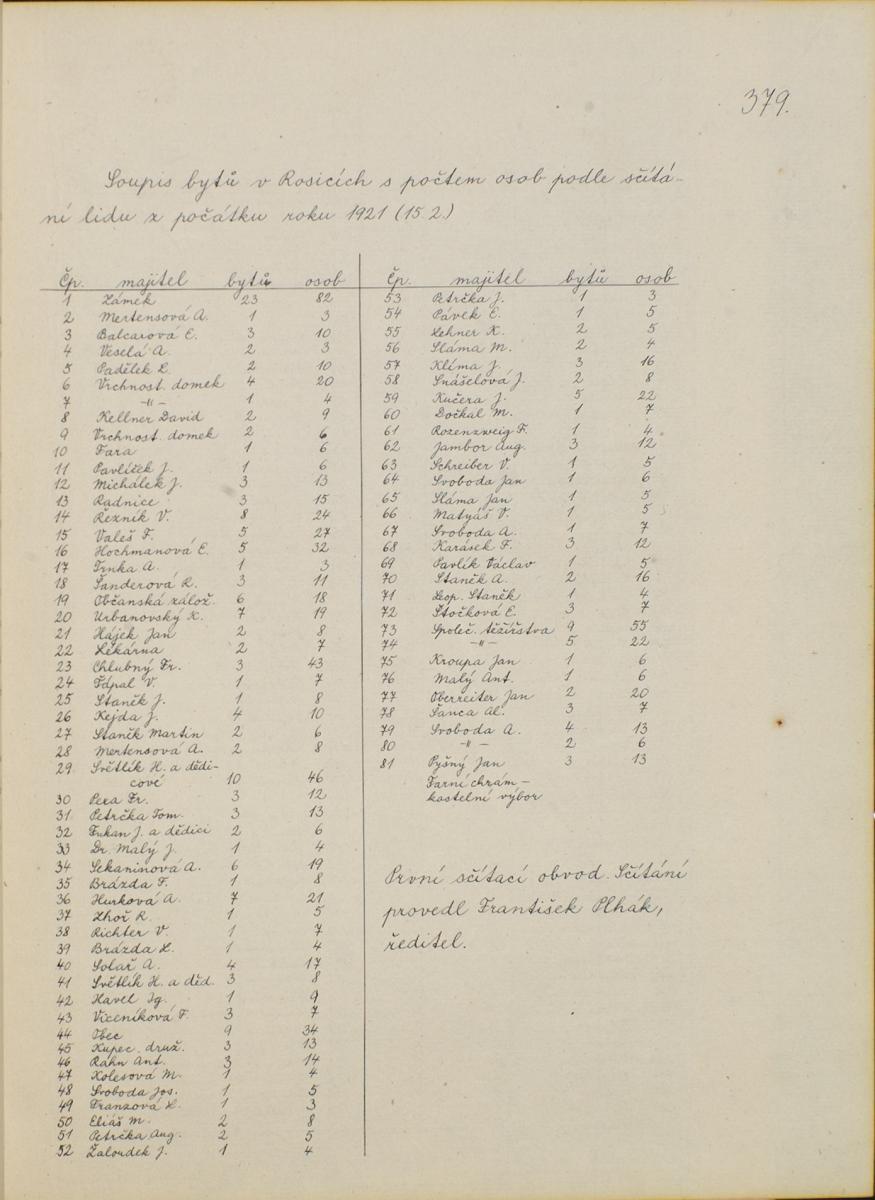 379.
Soupis bytů v Rosicích s počtem osob podle sčítá-
ní lidu z počátku roku 1921 (15.2.)
Čp. majitel bytů osob
1 Zámek 23 82
2 Mertensová A. 1 3
3 Balcarová E. 3 10
4 Veselá A. 2 3
5 Padělek L. 2 10
6 Vrchnost. domek 4 20
7 -"- 1 4
8 Kellner David 2 9
9 Vrchnost. domek 2 6
10 Fara 1 6
11 Pavlíček J. 1 6
12 Michálek J. 3 13
13 Radnice 3 15
14 Řezník V. 8 24
15 Valeš F. 5 27
16 Hochmanová E. 5 32
17 Trnka A. 1 3
18 Šanderová R. 3 11
19 Občanská zálož. 6 18
20 Urbanovský K. 7 19
21 Hájek Jan 2 8
22 Lékárna 2 7
23 Chlubný Fr. 3 43
24 Ťápal V. 1 7
25 Staněk J. 1 8
26 Kejda J. 4 10
27 Staněk Martin 2 6
28 Mertensová A. 2 8
29 Světlík H. a dědi-
cové 10 46
30 Pexa Fr. 3 12
31 Petrčka Tom. 3 13
32 Fukan J. a dědici 2 6
33 Dr. Malý J. 1 4
34 Sekaninová A. 6 19
35 Brázda F. 1 8
36 Hurková A. 7 21
37 Zhoř R. 1 5
38 Richter V. 1 7
39 Brázda L. 1 4
40 Solař A. 4 17
41 Světlík H. a děd. 3 8
42 Havel Ig. 1 9
43 Viceníková F. 3 7
44 Obec 9 34
45 Kupec. druž. 3 13
46 Rahn Ant. 3 14
47 Kolesová M. 1 4
48 Svoboda Jos. 1 5
49 Franzová L. 1 3
50 Eliáš M. 2 8
51 Petrčka Aug. 2 5
52 Žaloudek J. 1 4
Čp. majitel bytů osob
53 Petrčka J. 1 3
54 Pávek E. 1 5
55 Lehner K. 2 5
56 Sláma M. 2 4
57 Klíma J. 3 16
58 Snášelová J. 2 8
59 Kučera J. 5 22
60 Dočkal M. 1 7
61 Rozenzweig F. 1 4
62 Jambor Aug. 3 12
63 Schreiber V. 1 5
64 Svoboda Jan 1 6
65 Sláma Jan 1 5
66 Matyáš V. 1 5
67 Svoboda A. 1 7
68 Karásek F. 3 12
69 Pavlík Václav 1 5
70 Staněk A. 2 16
71 Leop. Staněk 1 4
72 Štočková E. 3 7
73 Společ. těžířstva 9 55
74 -"- 5 22
75 Kroupa Jan 1 6
76 Malý Ant. 1 6
77 Oberreiter Jan 2 20
78 Šanca Al. 3 7
79 Svoboda A. 4 13
80 -"- 2 6
81 Pyšný Jan 3 13
Farní chrám-
kostelní výbor
První sčítací obvod. Sčítání
provedl František Plhák,
ředitel.